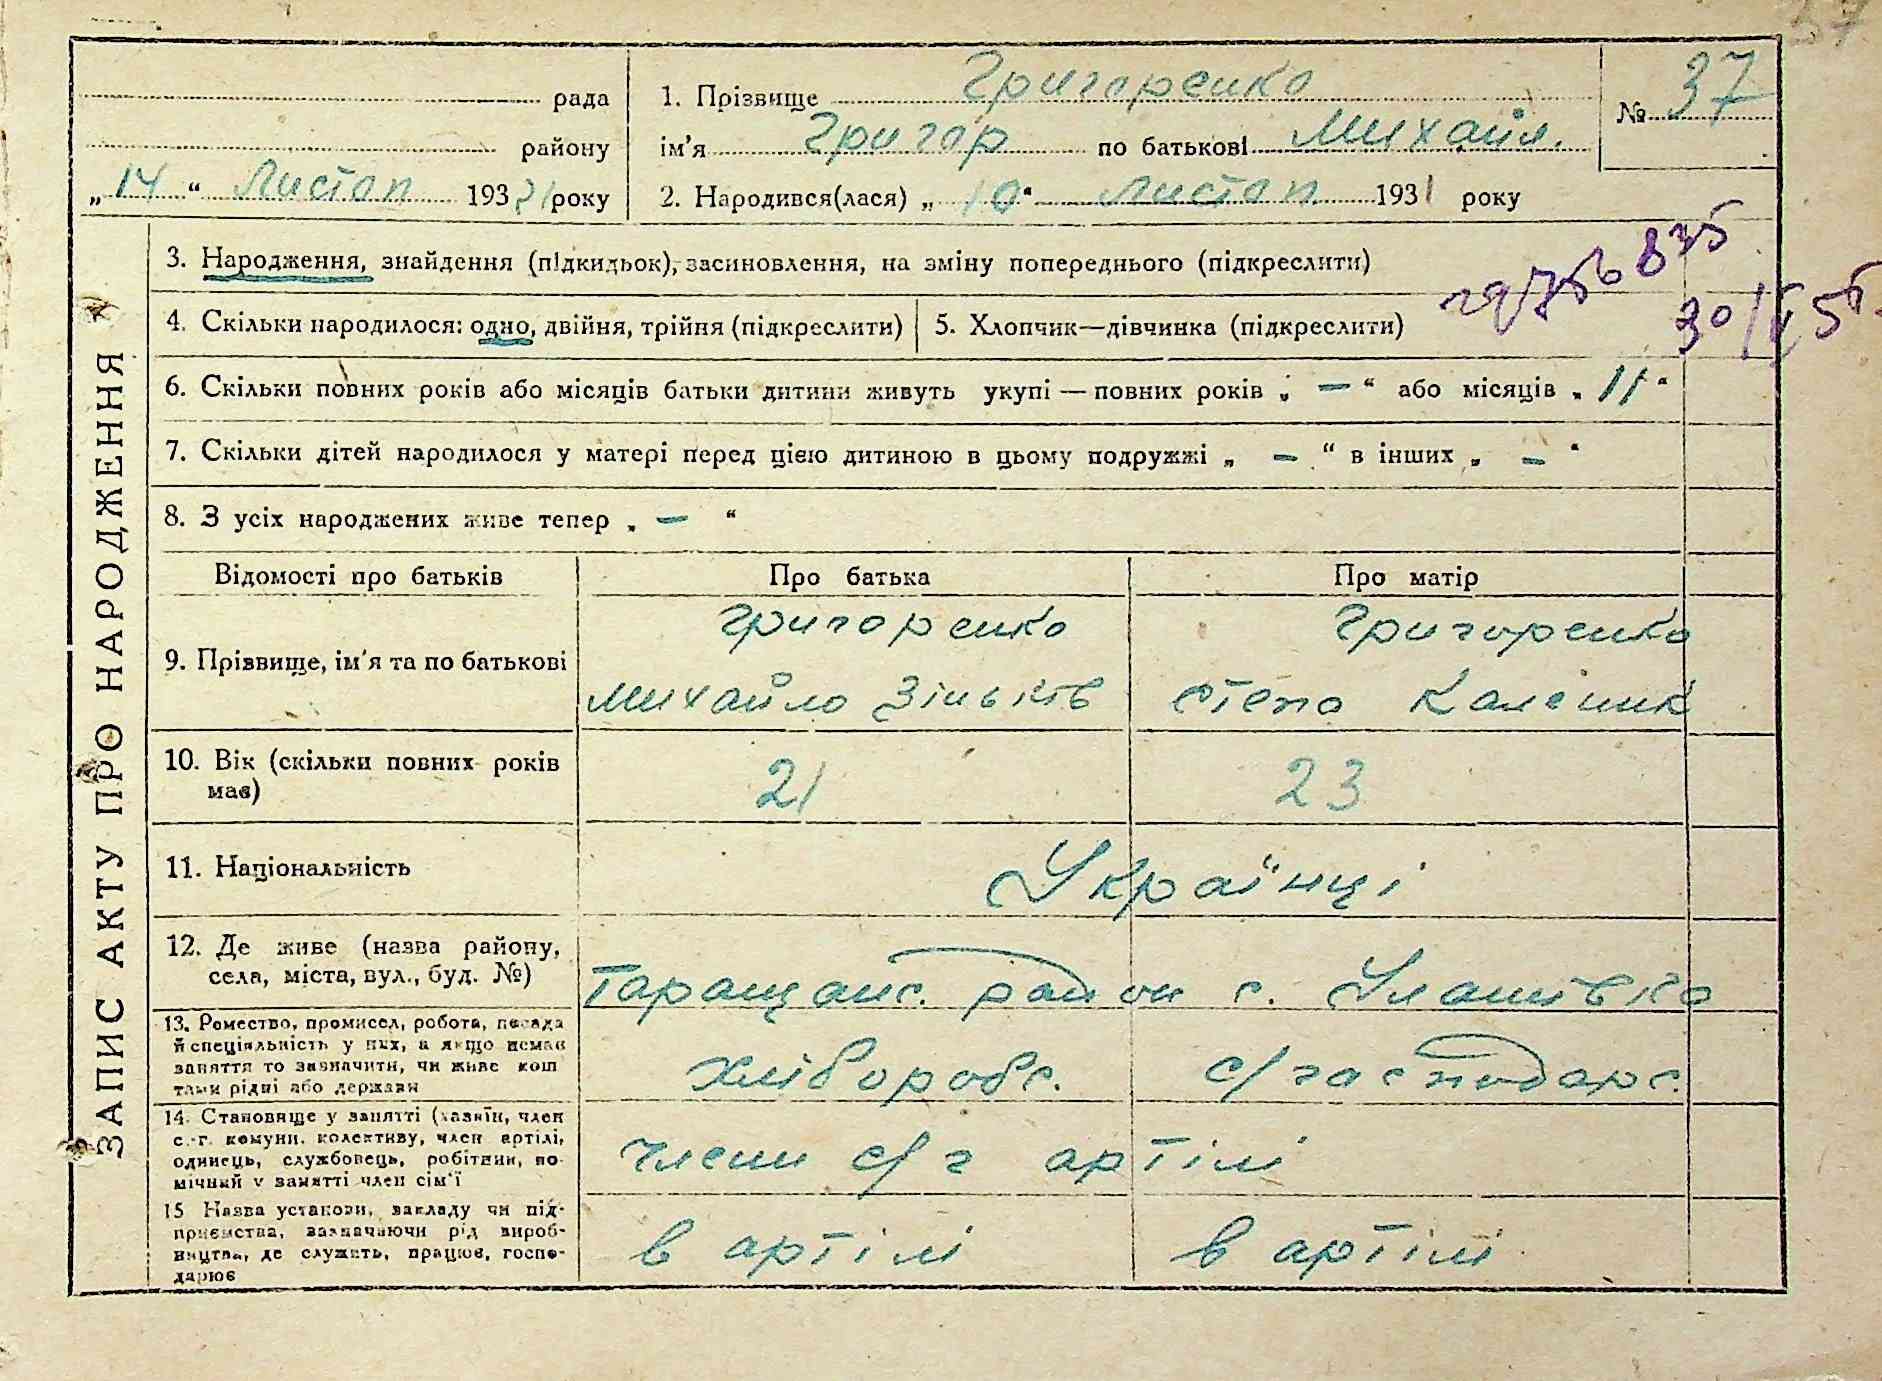 37
рада
1. Прізвище Григоренко
№ 37
району
ім'я Григор по батькові Михайл.
„14“ Листоп 1931 року
2. Народився(лася) „10“ Листоп 1931 року
ЗАПИС АКТУ ПРО НАРОДЖЕННЯ
3. Народження, знайдення (підкидьок), засиновлення, на зміну попереднього (підкреслити)
4. Скільки народилося: одно, двійня, трійня (підкреслити)
5. Хлопчик—дівчинка (підкреслити)
6. Скільки повних років або місяців батьки дитини живуть укупі — повних років „ — “ або місяців „ 11 “
7. Скільки дітей народилося у матері перед цією дитиною в цьому подружжі „ — “ в інших „ — “
8. З усіх народжених живе тепер „ — “
Відомості про батьків
Про батька
Про матір
9. Прізвище, ім'я та по батькові
Григоренко
Михайло Зіньків
Григоренко
Степа Калєник
10. Вік (скільки повних років
має)
21
23
11. Національність
Українці
12. Де живе (назва району,
села, міста, вул., буд. №)
Таращанс. район с. Улашівка
13. Ремество, промисел, робота, посада
й спеціяльність у них, а якщо немає
заняття то зазначити, чи живе кош
тами рідні або держави
Хлібороб с.
с/господарс.
14. Становище у занятті (хазяїн, член
с.-г. комуни, колективу, член артілі,
одинець, службовець, робітник, по-
мічний у занятті член сім'ї
члени с/г артілі
15 Назва установи, закладу чи під-
приємства, зазначаючи рід вироб-
вицтва, де служить, працює, госпо-
дарює
в артілі
в артілі